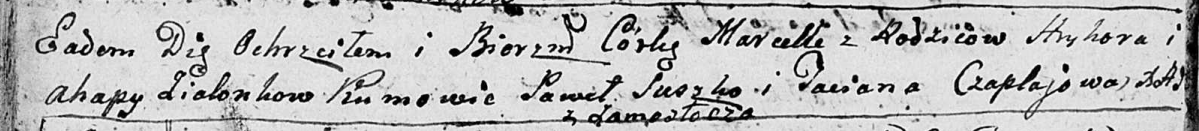 Eadem Die Ochrzciłem i Bierzm Córkę Marcellę z Rodziców Hryhora i
ahapy Zialonkow Kumowie Paweł Suszko i Taciana Czaplajowa
z Zamostocza